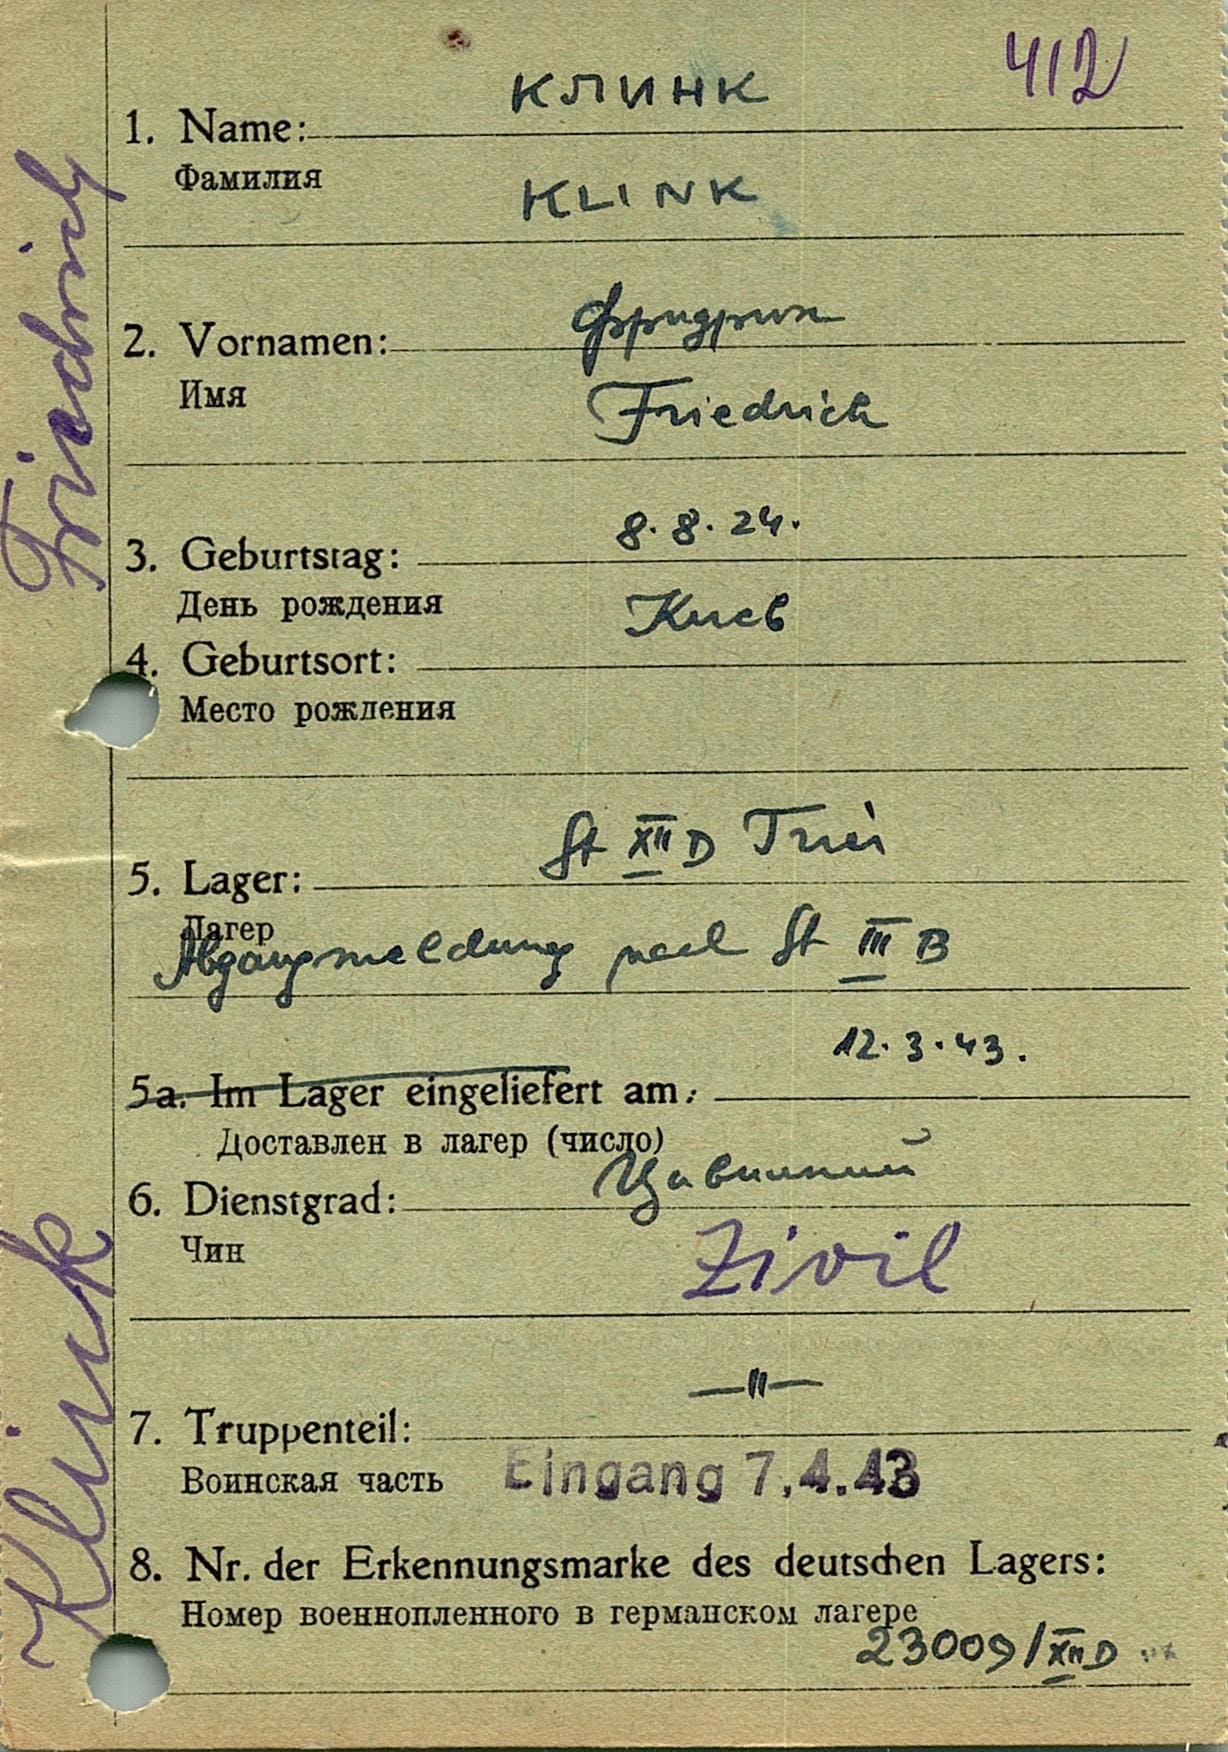 412
КЛИНК
1. Name:
Фамилия
KLINK
Фридрих
2. Vornamen:
Имя
Friedrich
8. 8. 24.
3. Geburtstag:
День рождения
Киев
4. Geburtsort:
Место рождения
St XII D Trier
5. Lager:
Лагер
Abgangsmeldung nach St III B
12. 3. 43.
5a. Im Lager eingeliefert am:
Доставлен в лагер (число)
Цивилний
6. Dienstgrad:
Чин
Zivil
—"—
7. Truppenteil:
Воинская часть
Eingang 7.4.43
8. Nr. der Erkennungsmarke des deutschen Lagers:
Номер военнопленного в германском лагере
23009/XII D
Klink Friedrich